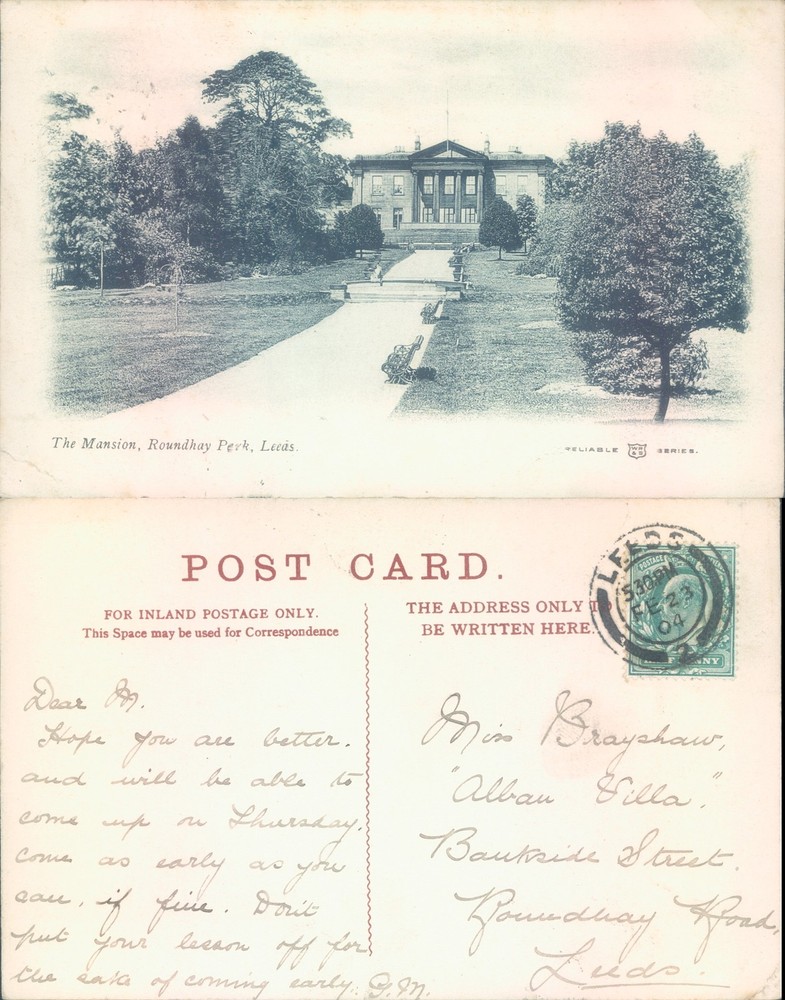 The Mansion, Roundhay Park, Leeds.
RELIABLE WR & S SERIES.
POST CARD.
FOR INLAND POSTAGE ONLY.
This Space may be used for Correspondence
THE ADDRESS ONLY TO
BE WRITTEN HERE.
LEEDS
5 30 PM
FE 23
04
2
POSTAGE
HALFPENNY
Dear M.
Hope you are better.
and will be able to
come up on Thursday.
come as early as you
can, if fine. Don't
put your lesson off for
the sake of coming early. G.M.
Miss Brayshaw,
"Alban Villa",
Bankside Street.
Roundhay Road,
Leeds.